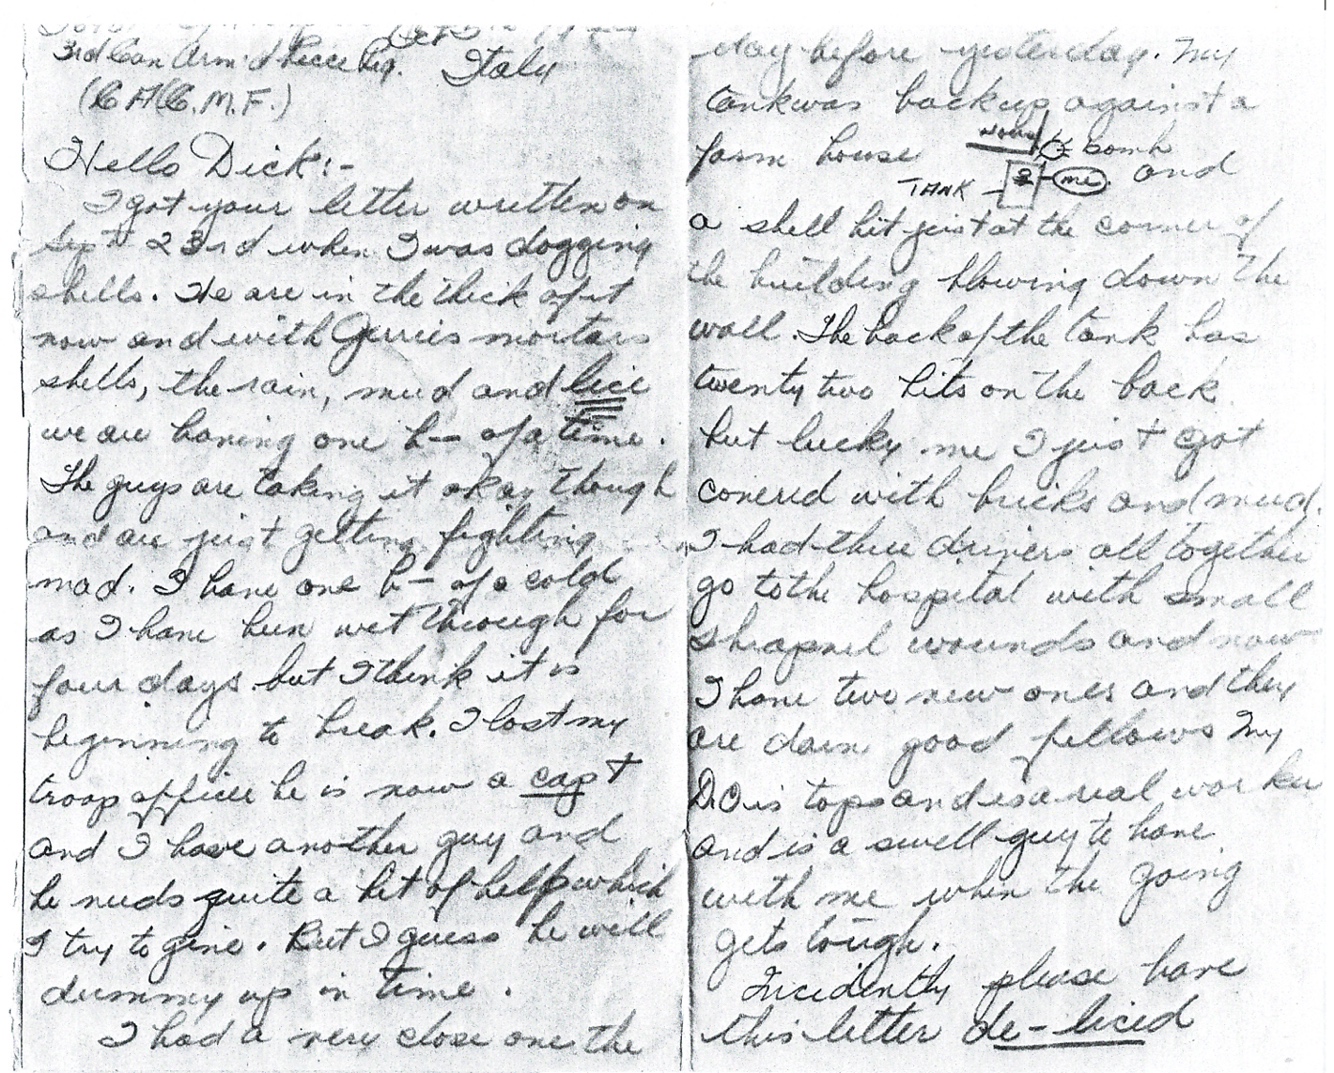 Oct
3rd Can Arm'd Recce Reg. Italy
(C.A.C.M.F.)
Hello Dick:-
I got your letter written on
Sept 23rd when I was dogging
shells. We are in the thick of it
now and with Gerries mortars
shells, the rain, mud and lice
we are having one h— of a time.
The guys are taking it okay though
and are just getting fighting
mad. I have one h— of a cold
as I have been wet through for
four days but I think it is
beginning to break. I lost my
troop officer he is now a capt
and I have another guy and
he needs quite a bit of help which
I try to give. But I guess he will
dummy up in time.
I had a very close one the
day before yesterday. My
tank was back up against a
farm house
bomb
and
TANK
me
a shell hit just at the corner of
the building blowing down the
wall. The back of the tank has
twenty two hits on the back
but lucky me I just got
covered with bricks and mud.
I had three drivers all together
go to the hospital with small
shrapnel wounds and now
I have two new ones and they
are darn good fellows My
D.O is tops and is a real worker
and is a swell guy to have
with me when the going
gets tough.
Incidently please have
this letter de-liced